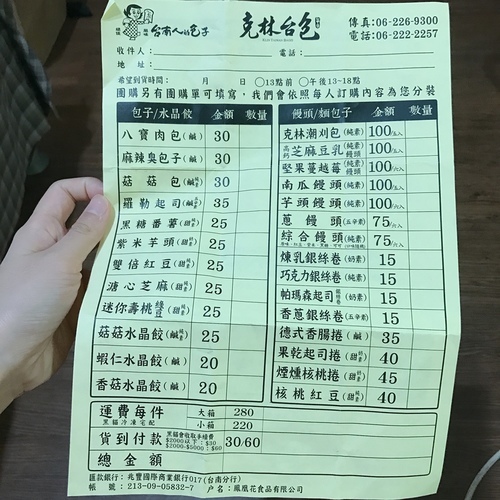 台南人的包子
克林台包
傳真:06-226-9300
電話:06-222-2257
收件人:
電話:
地 址:
希望到貨時間: 月 日 ○13點前 ○午後13~18點
團購另有團購單可填寫,我們會依照每人訂購內容為您分裝
包子/水晶餃 金額 數量
八寶肉包(鹹) 30
麻辣臭包子(鹹) 30
菇菇包 30
羅勒起司 35
黑糖番薯 25
紫米芋頭 25
雙倍紅豆 25
溏心芝麻 25
迷你壽桃 25
菇菇水晶餃 25
蝦仁水晶餃(鹹) 20
香菇水晶餃(鹹) 20
饅頭/麵包子 金額 數量
克林潮刈包(純素) 100/5入
高鈣芝麻豆乳(純素)饅頭 100/六入
堅果蔓越莓(純素)饅頭 100/六入
南瓜饅頭(純素) 100/六入
芋頭饅頭(純素) 100/六入
蔥饅頭(五辛素) 75/六入
綜合饅頭(純素) 75/六入
煉乳銀絲卷(奶素) 15
巧克力銀絲卷(純素) 15
帕瑪森起司銀絲卷(奶素) 15
香蔥銀絲卷(五辛素) 15
德式香腸捲(鹹) 35
果乾起司捲 40
煙燻核桃捲 45
核桃紅豆 40
運費每件 大箱 280
黑貓冷凍宅配 小箱 220
貨到付款 黑貓會收取手續費 $2000以下:$30 $2000~5000:$60 30/60
總金額
匯款銀行:兆豐國際商業銀行017(台南分行)
帳 號:213-09-05832-7 戶名:鳳凰花食品有限公司